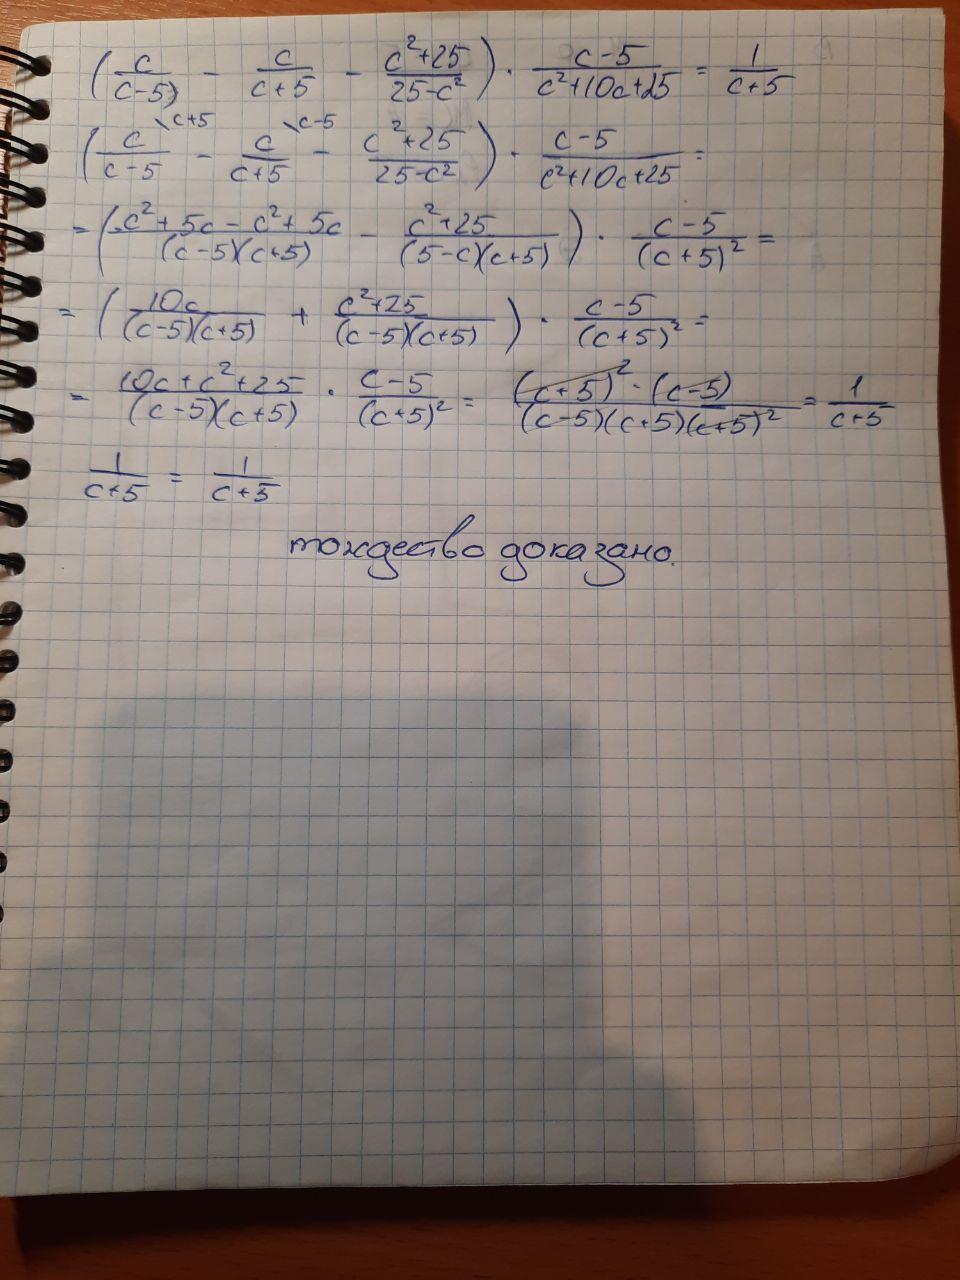 (c/(c-5) - c/(c+5) - (c²+25)/(25-c²)) · (c-5)/(c²+10c+25) = 1/(c+5)
(c/(c-5) \c+5 - c/(c+5) \c-5 - (c²+25)/(25-c²)) · (c-5)/(c²+10c+25) =
= ((c²+5c-c²+5c)/((c-5)(c+5)) - (c²+25)/((5-c)(c+5))) · (c-5)/(c+5)² =
= (10c/((c-5)(c+5)) + (c²+25)/((c-5)(c+5))) · (c-5)/(c+5)² =
= (10c+c²+25)/((c-5)(c+5)) · (c-5)/(c+5)² = ((c+5)²·(c-5))/((c-5)(c+5)(c+5)²) = 1/(c+5)
1/(c+5) = 1/(c+5)
тождество доказано.